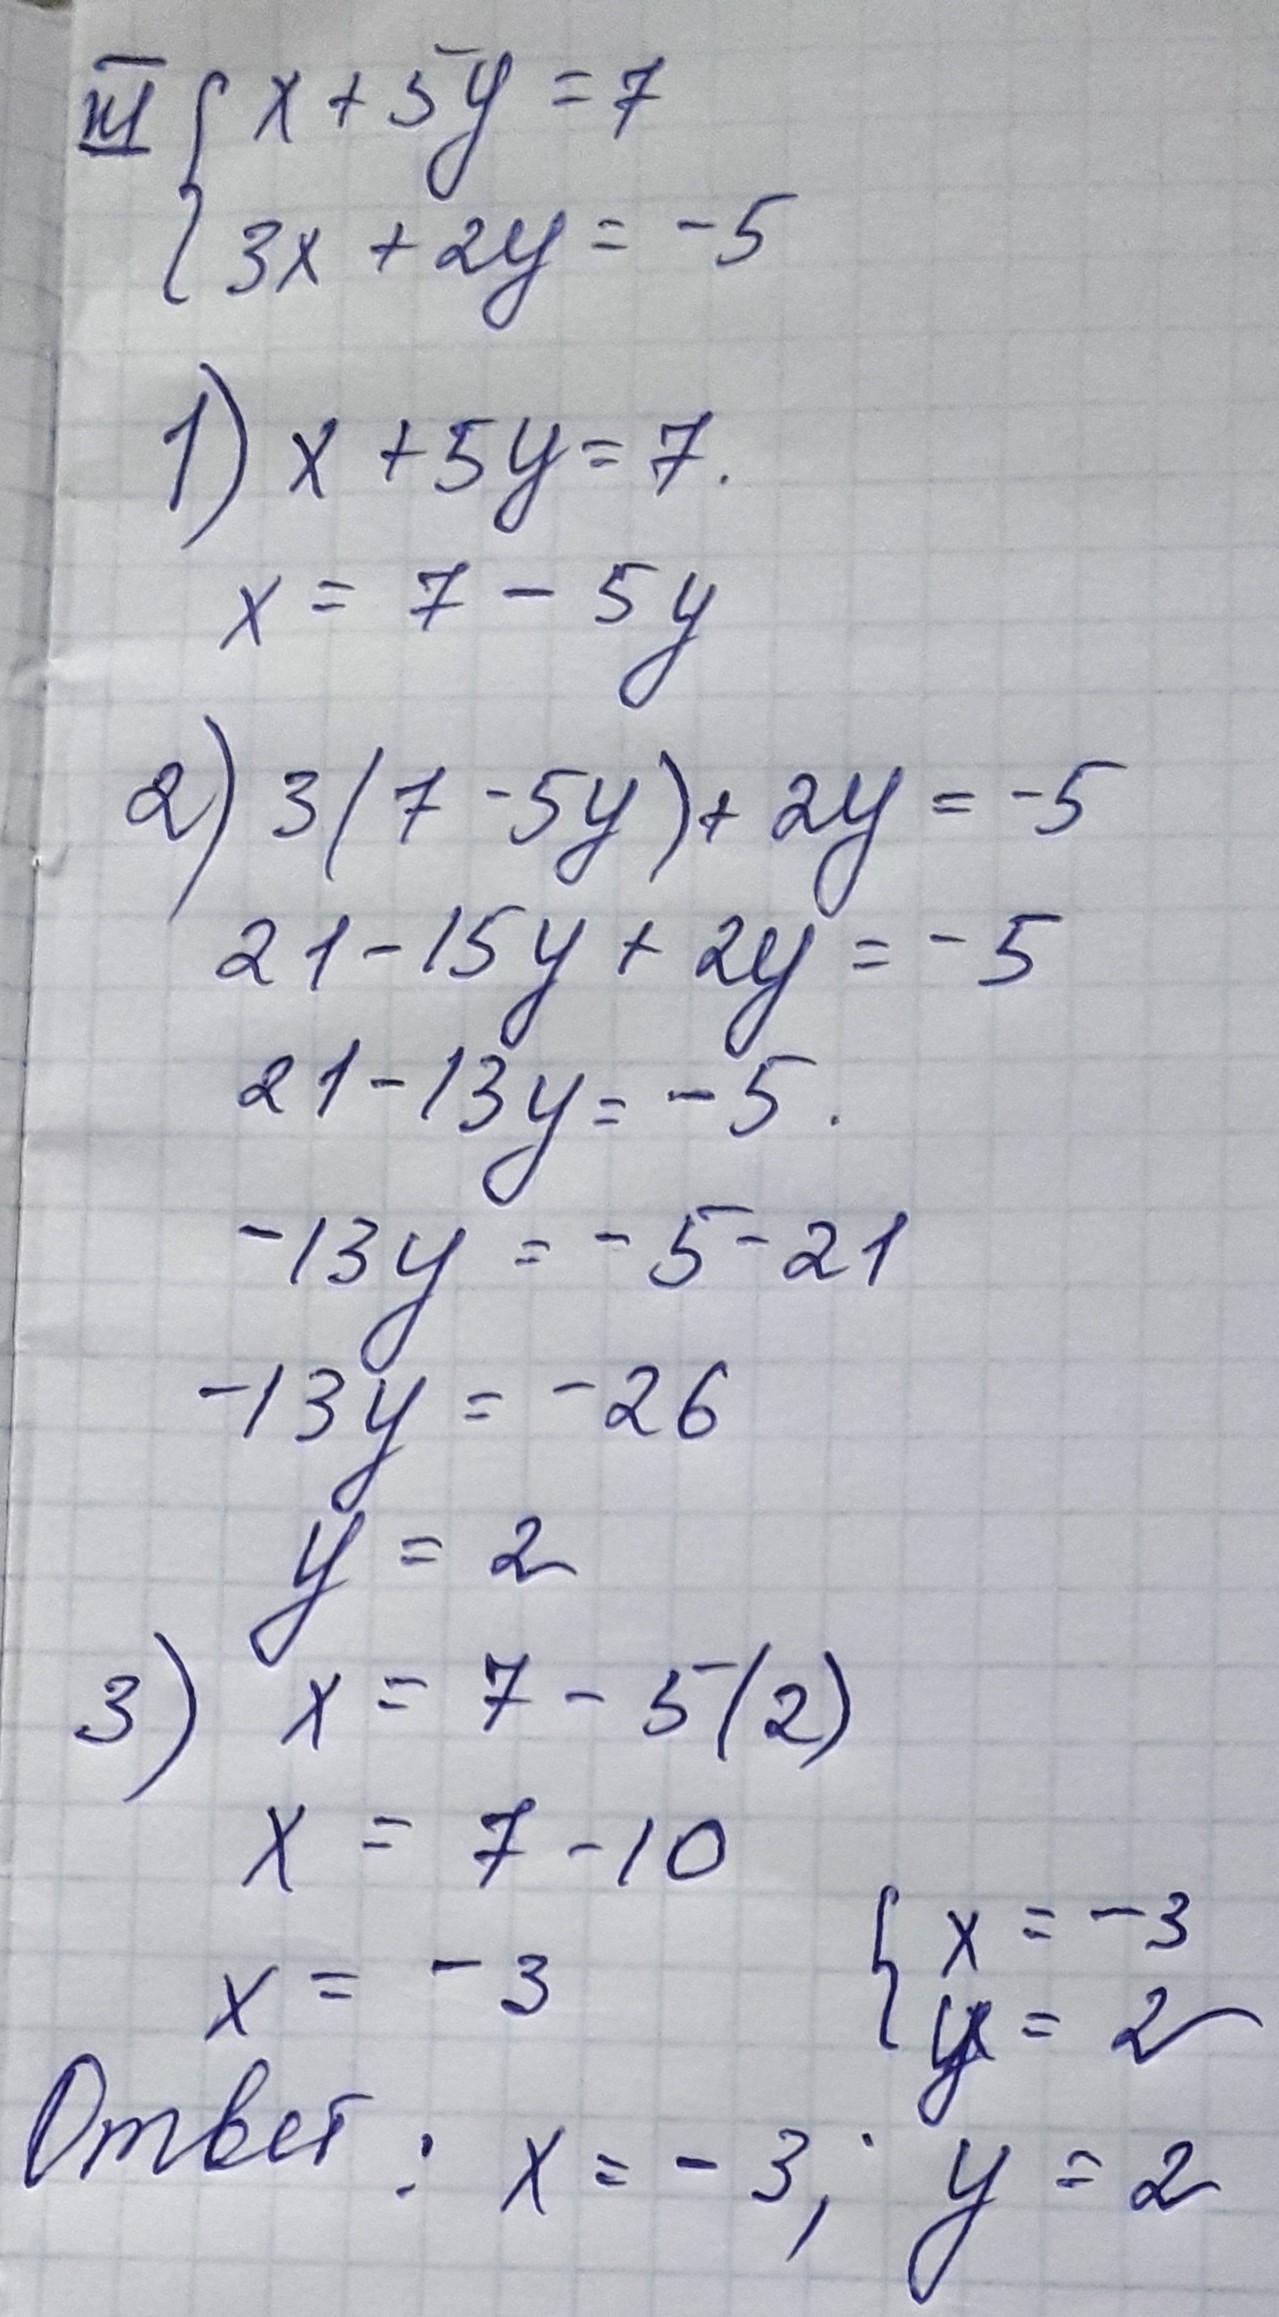 III { x + 5y = 7
3x + 2y = -5
1) x + 5y = 7.
x = 7 - 5y
2) 3(7 - 5y) + 2y = -5
21 - 15y + 2y = -5
21 - 13y = -5.
-13y = -5 - 21
-13y = -26
y = 2
3) x = 7 - 5(2)
x = 7 - 10
x = -3
{ x = -3
y = 2
Ответ: x = -3; y = 2